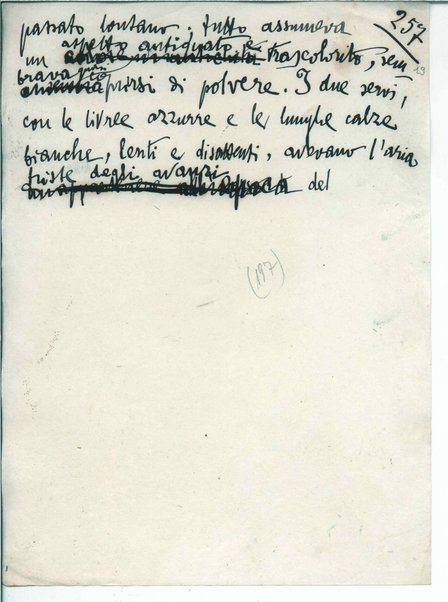 257
13
passato lontano; tutto assumeva
aspetto antiquato e
un trascolorito, sem
brava
coprirsi di polvere. I due servi,
con le livree azzurre e le lunghe calze
bianche, lenti e disattenti, avevano l'aria
triste degli avanzi
del
(197)